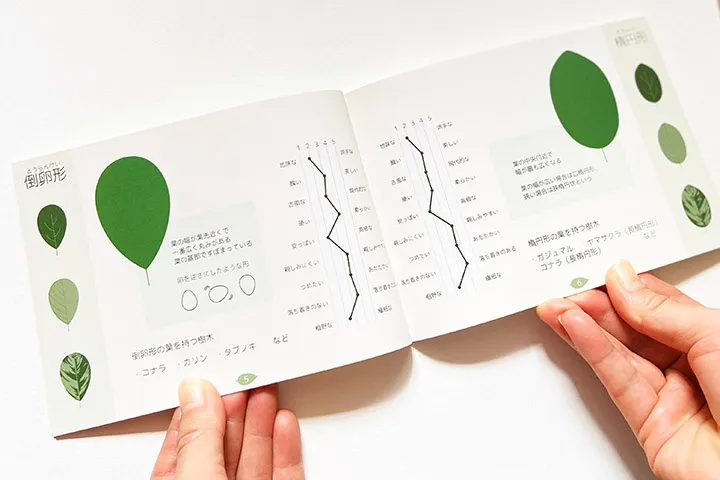 とうらんけい
倒卵形
葉の幅が葉先近くで
一番広く丸みがある
葉の基部ですぼまっている
卵を逆さにしたような形
1 2 3 4 5
地味な 派手な
醜い 美しい
古風な 現代的な
硬い 柔らかい
安っぽい 高級な
親しみにくい 親しみやすい
つめたい あたたかい
落ち着きのない 落ち着きのある
粗野な 繊細な
倒卵形の葉を持つ樹木
・コナラ ・カリン ・タブノキ など
5
楕円形
1 2 3 4 5
地味な 派手な
醜い 美しい
古風な 現代的な
硬い 柔らかい
安っぽい 高級な
親しみにくい 親しみやすい
つめたい あたたかい
落ち着きのない 落ち着きのある
粗野な 繊細な
葉の中央付近で
幅が最も広くなる
葉の幅が広い場合は広楕円形、
狭い場合は狭楕円状という
楕円形の葉を持つ樹木
・ガジュマル ヤマザクラ（長楕円形）
・コナラ（長楕円形） など
6